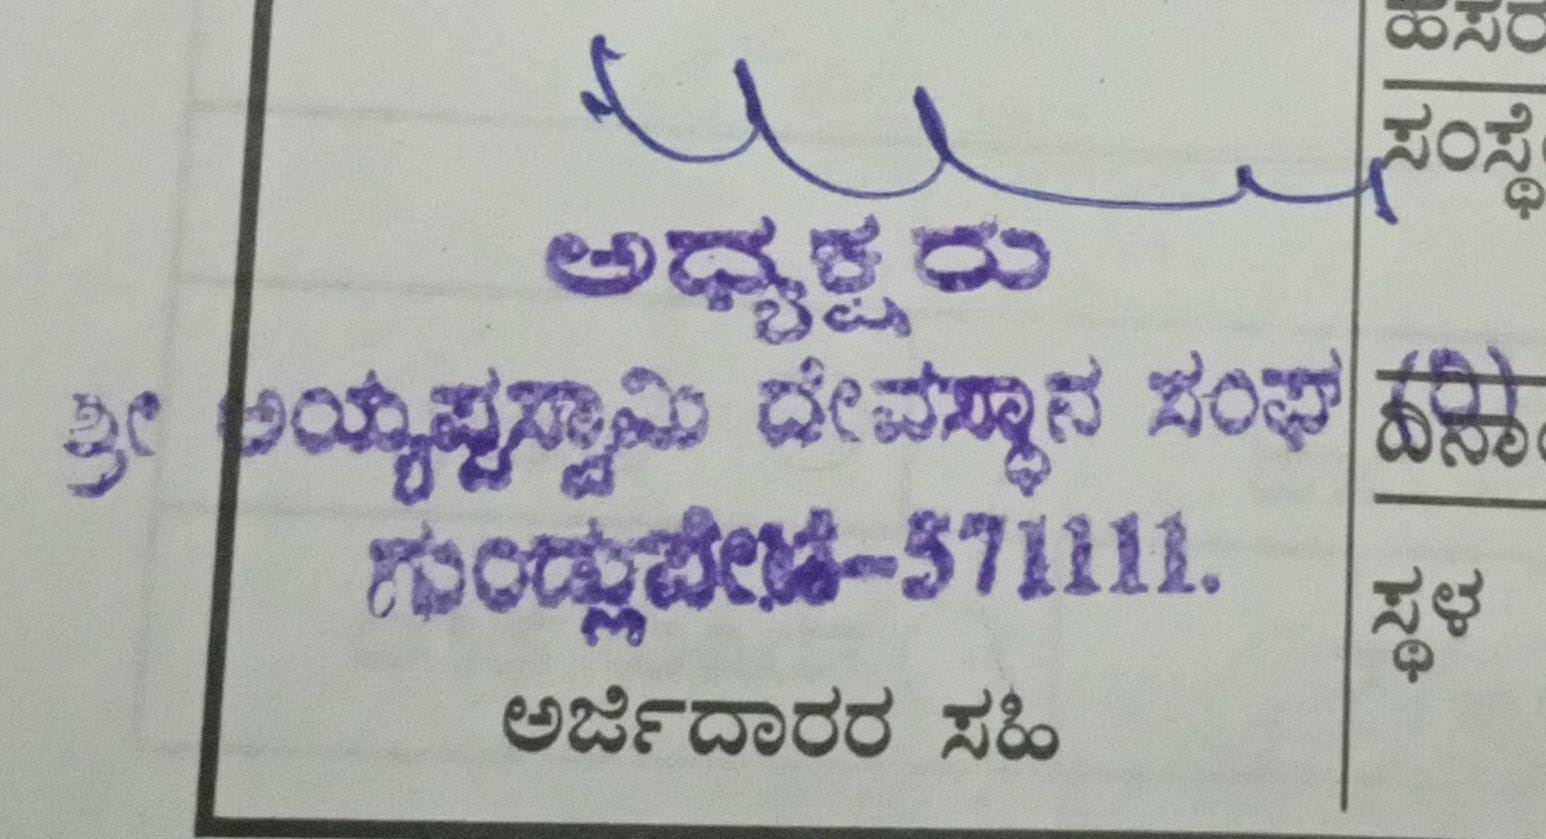 ಅಧ್ಯಕ್ಷರು
ಶ್ರೀ ಅಯ್ಯಪ್ಪಸ್ವಾಮಿ ದೇವಸ್ಥಾನ ಸಂಘ (ರಿ)
ಗುಂಡ್ಲುಪೇಟೆ-571111.
ಅರ್ಜಿದಾರರ ಸಹಿ
ಸ್ಥಳ